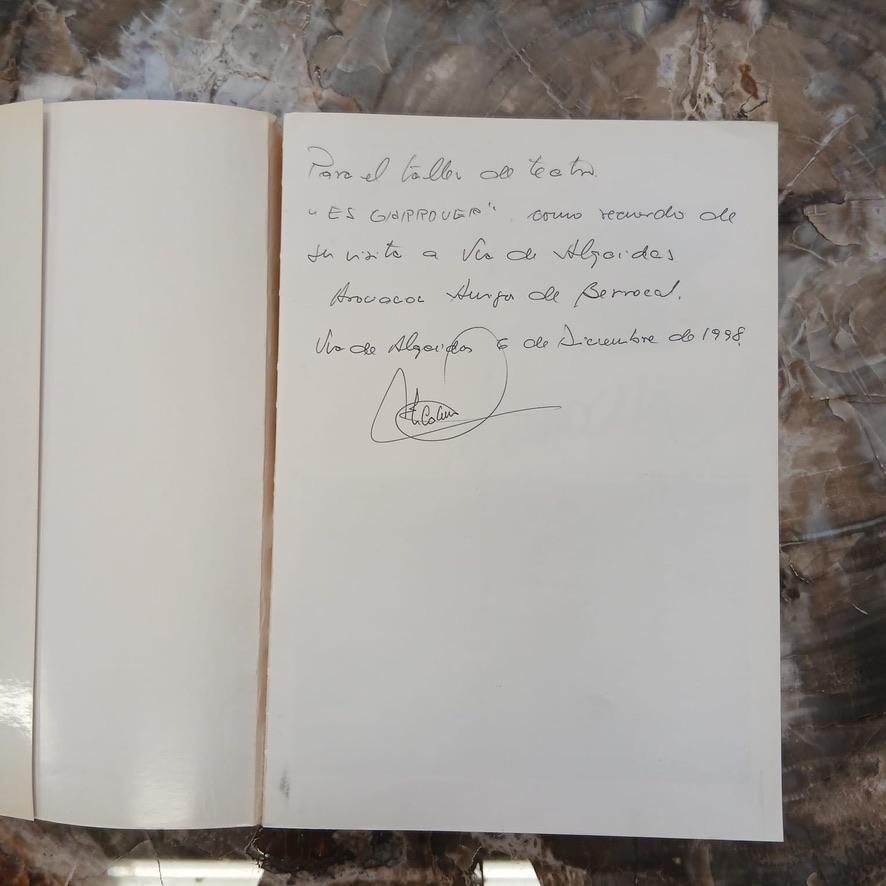 Para el taller de teatro
"ES GARROVER" como recuerdo de
su visita a Vva de Algaidas
Amigos de Berrocal.
Vva de Algaidas 6 de Diciembre de 1998